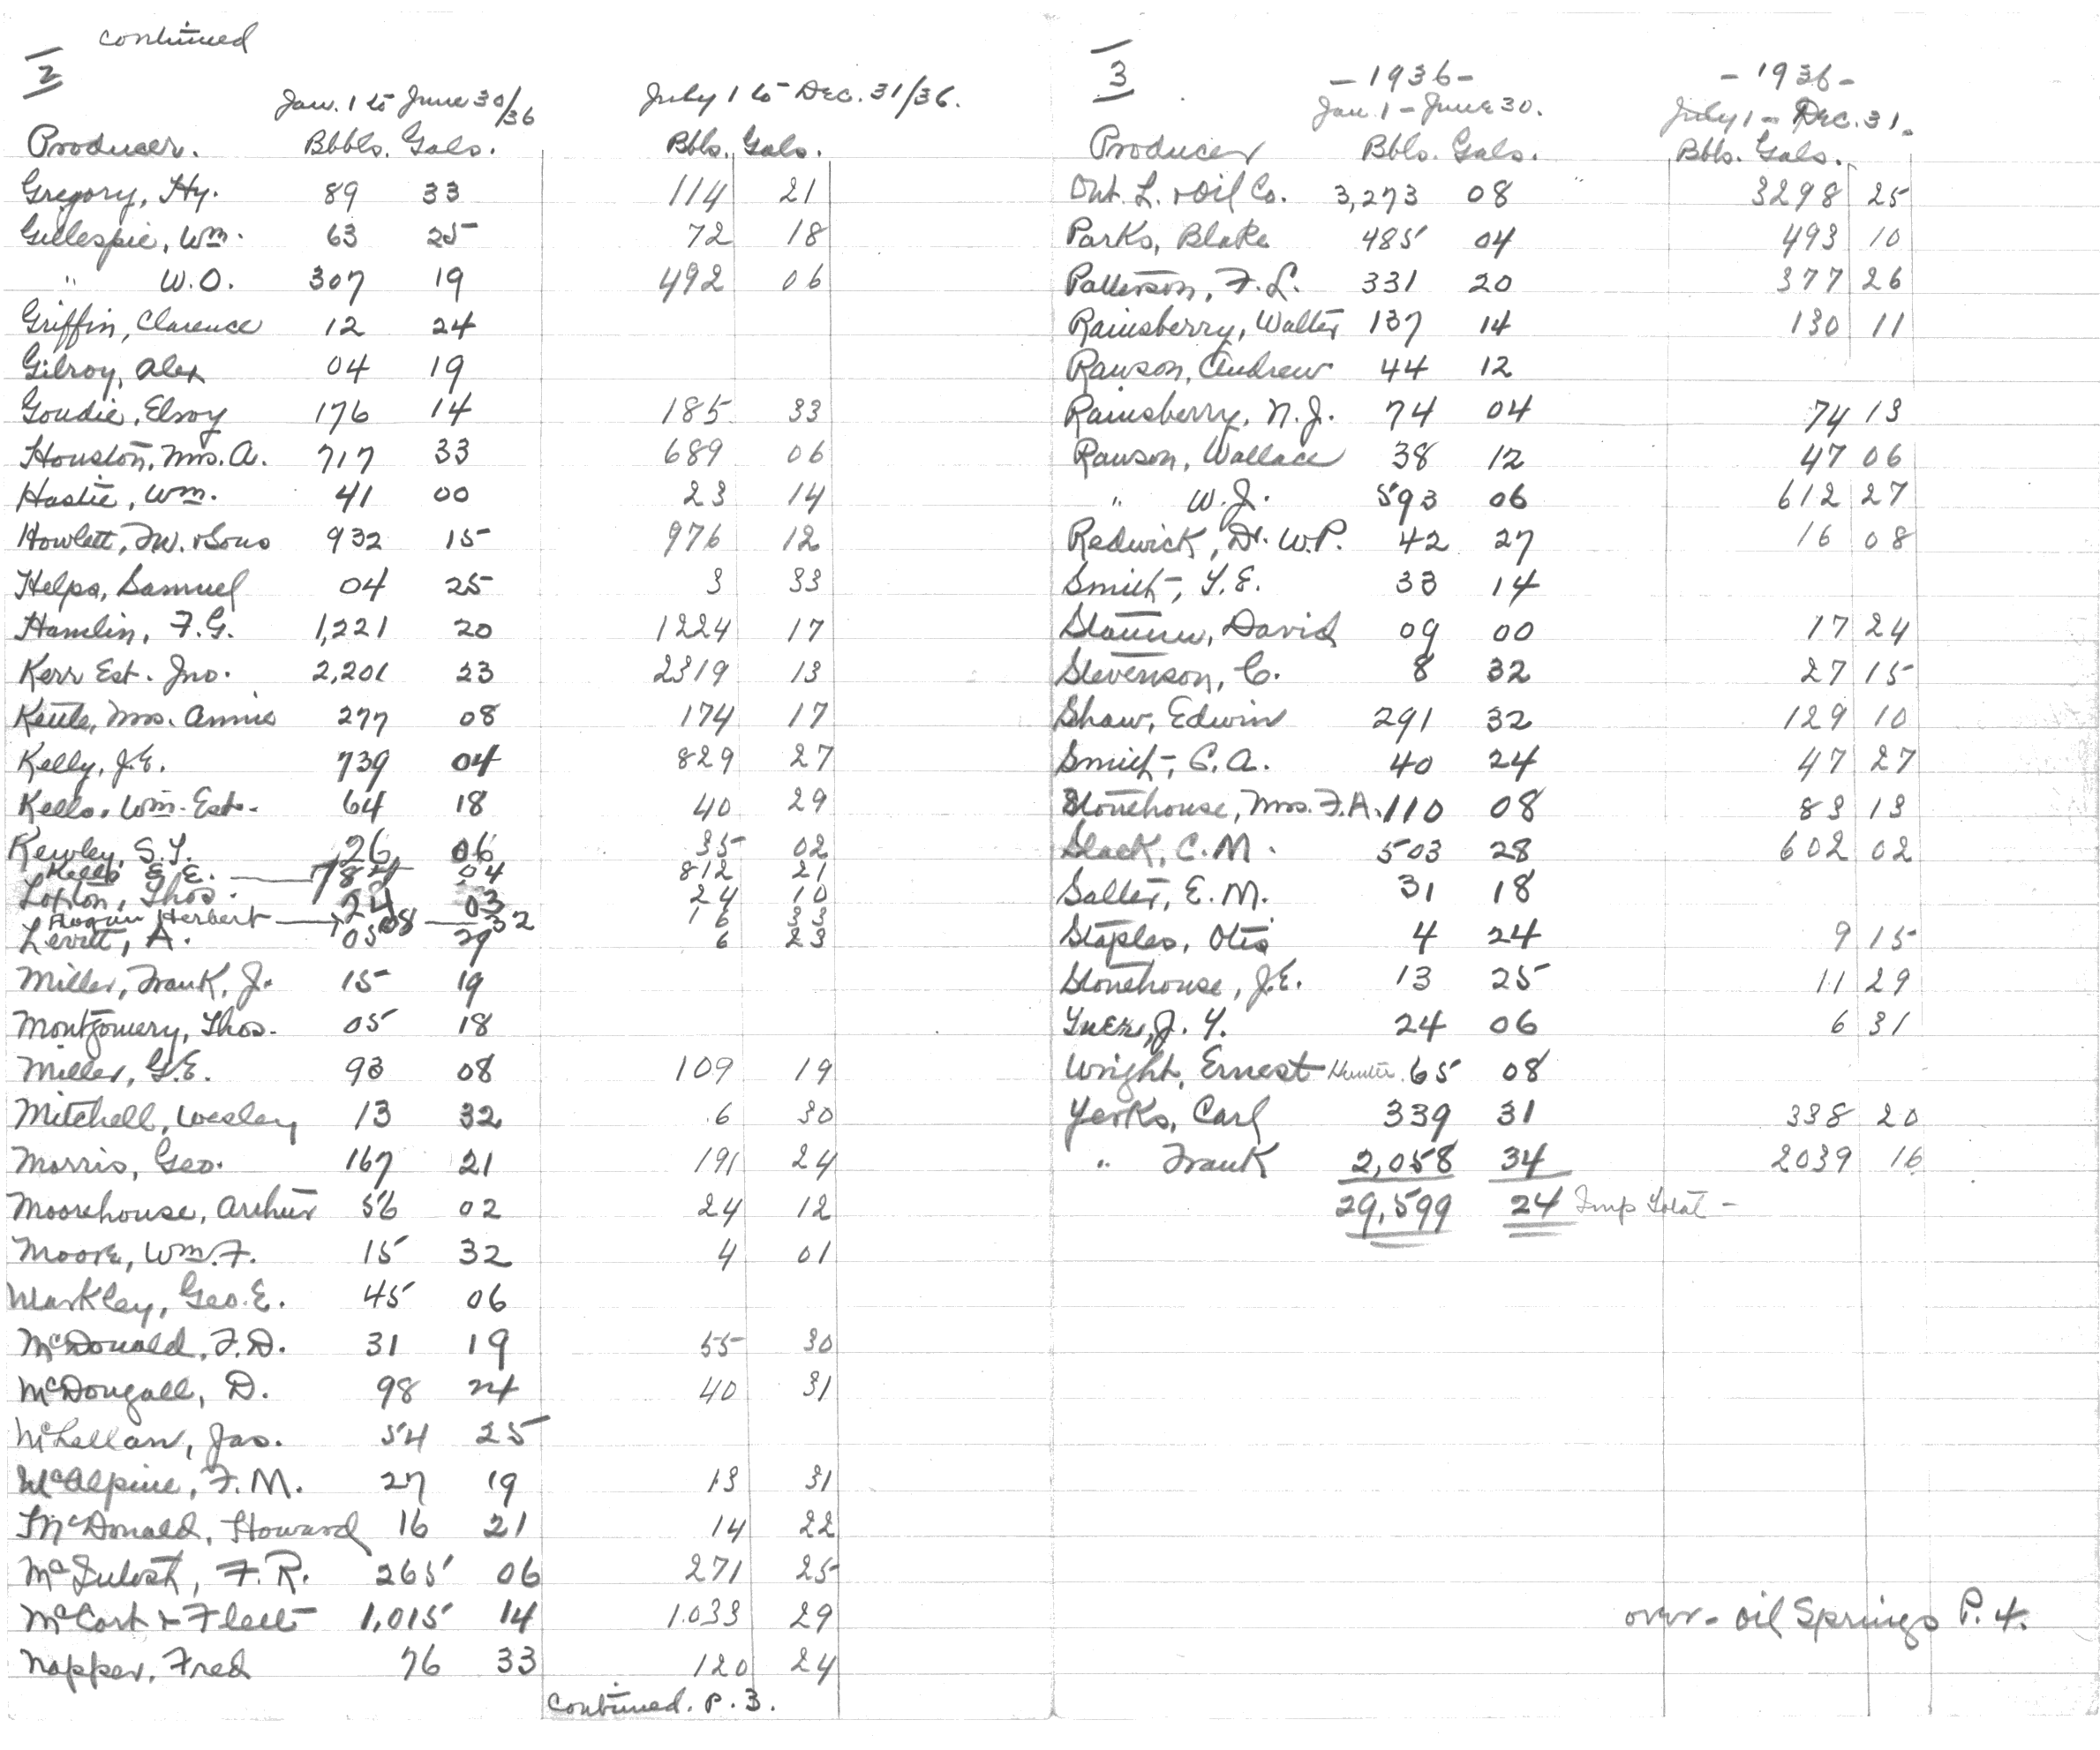 continued
2
Jan. 1 to June 30/36 July 1 to Dec. 31/36.
Producer. Bbbls. Gals. Bbls. Gals.
Gregory, Hy. 89 33 114 21
Gillespie, Wm. 63 25 72 18
" W.O. 307 19 492 06
Griffin, Clarence 12 24
Gilroy, Alex 04 19
Goudie, Elroy 176 14 185 33
Houston, Mrs. A. 717 33 689 06
Hastie, Wm. 41 00 23 14
Howlett, F.W. & Sons 932 15 976 12
Helps, Samuel 04 25 3 33
Hamlin, F.G. 1,221 20 1224 17
Kerr Est. Jno. 2,201 23 2319 13
Mrs. Annie 277 08 174 17
Kelly, J.E. 739 04 829 27
Kells, Wm. Est. 64 18 40 29
Kewley, S.T. 26 06 35 02
Kells E.E. 784 04 812 21
Loxton, Thos. 24 03 24 10
Herbert 08 32 16 33
Levitt, A. 05 29 6 23
Miller, Frank, J. 15 19
Montgomery, Thos. 05 18
Miller, G.E. 93 08 109 19
Mitchell, Wesley 13 32 6 30
Morris, Geo. 167 21 191 24
Moorehouse, Arthur 56 02 24 12
Moore, Wm. F. 15 32 4 01
Markley, Geo. E. 45 06
McDonald, F.D. 31 19 55 30
McDougall, D. 98 24 40 31
McLellan, Jas. 54 25
McAlpine, F.M. 27 19 13 31
McDonald, Howard 16 21 14 22
McIntosh, F.R. 265 06 271 25
McCort & Fleet 1,015 14 1.033 29
Napper, Fred 76 33 120 24
Continued. P. 3.
3
- 1936 - - 1936 -
Jan. 1 - June 30. July 1 - Dec. 31.
Producer Bbls. Gals. Bbls. Gals.
Ont. L. & Oil Co. 3,273 08 3298 25
Parks, Blake 485 04 493 10
Patterson, F.L. 331 20 377 26
Rainsberry, Walter 137 14 130 11
Rawson, Andrew 44 12
Rainsberry, N.J. 74 04 74 13
Rawson, Wallace 38 12 47 06
" W.J. 593 06 612 27
Redwick, Dr. W.P. 42 27 16 08
Smith, T.E. 33 14
David 09 00 17 24
Stevenson, C. 8 32 27 15
Shaw, Edwin 291 32 129 10
Smith, C.A. 40 24 47 27
Stonehouse, Mrs. F.A. 110 08 83 13
Slack, C.M. 503 28 602 02
Salter, E.M. 31 18
Staples, Otis 4 24 9 15
Stonehouse, J.E. 13 25 11 29
J. Y. 24 06 6 31
Wright, Ernest 65 08
Yerks, Carl 339 31 338 20
" Frank 2,058 34 2039 16
29,599 24 Imp Total -
over - Oil Springs P. 4.